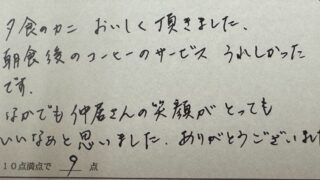 夕食のカニ おいしく頂きました.
朝食後のコーヒーのサービス うれしかった
です.
なかでも仲居さんの笑顔がとっても
いいなあと思いました. ありがとうございまし
10点満点で 9 点